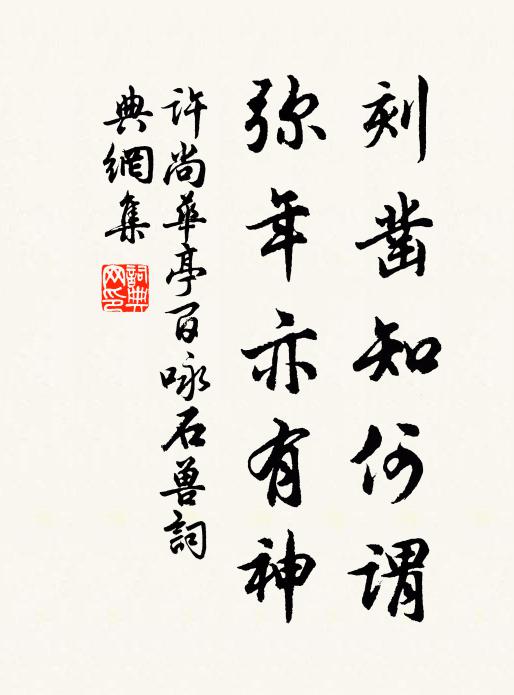 刻凿知何谓
弥年亦有神
许尚华亭百咏石兽词
典网集
词典网印